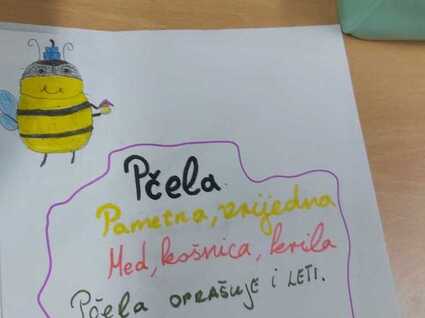 Pčela.
Pametna, vrijedna
Med, košnica, krila
Pčela OPRAŠUJE i LETI.